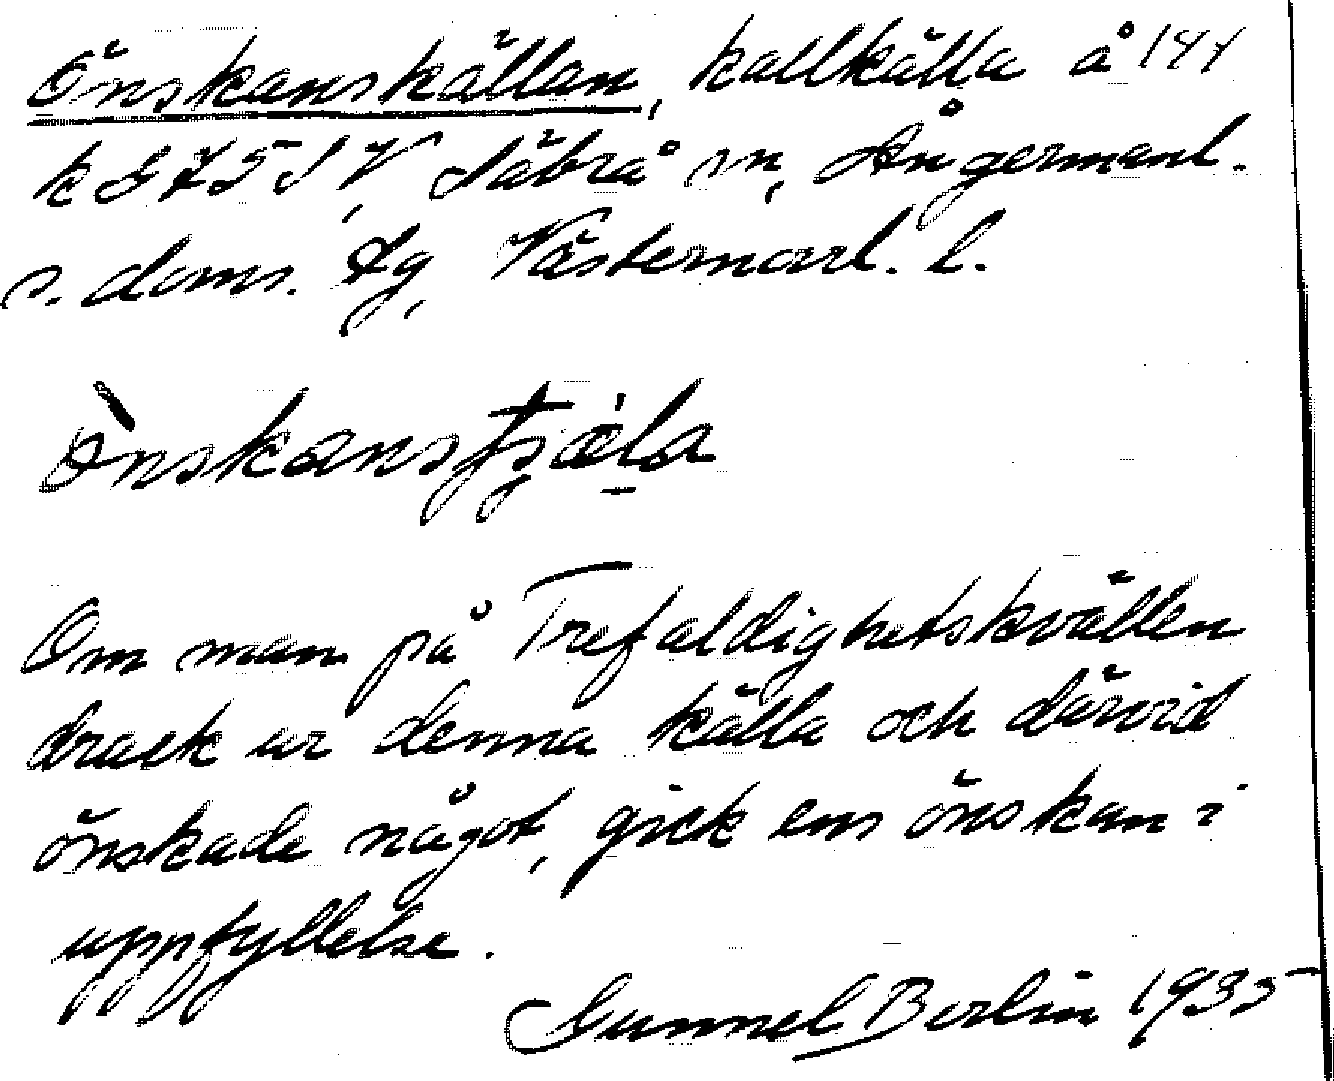 Önskanskällan, kallkälla å 144
k S 75 S V, Säbrå sn, Ångermanl.
s. doms. tg, Västernorrl. l.
Önskansfjäla
Om man på Trefaldighetskvällen
drack ur denna källa och därvid
önskade något, gick ens önskan i
uppfyllelse.
Gunnel Berlin 1935